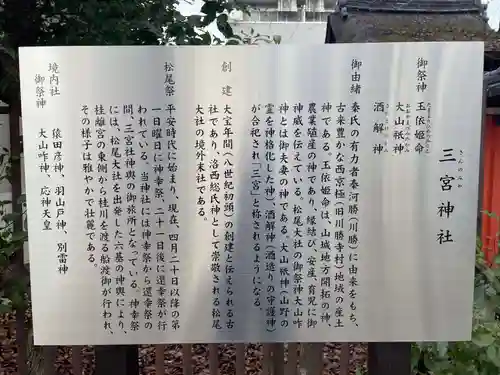 三宮神社
さんのみや
御祭神
玉依姫命
たまよりひめのみこと
大山祇神
おおやまづみのかみ
酒解神
さかとけのかみ
御由緒
秦氏の有力者秦河勝（川勝）に由来をもち、
古来豊かな西京極（旧川勝寺村）地域の産土
神である。玉依姫命は、山城地方開拓の神、
農業殖産の神であり、縁結び、安産、育児に御
神威を伝えている。松尾大社の御祭神大山咋
神とは御夫妻の神である。大山祇神（山野の
霊を神格化した神）、酒解神（酒造りの守護神）
が合祀され「三宮」と称されるようになる。
創建
大宝年間（八世紀初頭）の創建と伝えられる古
社であり、洛西総氏神として崇敬される松尾
大社の境外末社である。
松尾祭
平安時代に始まり、現在、四月二十日以降の第
一日曜日に神幸祭、二十一日後に還幸祭が行
われている。当神社には神幸祭から還幸祭の
間、三宮社神輿の御旅所となっている。神幸祭
には、松尾大社を出発した六基の神輿により、
桂離宮の東側から桂川を渡る船渡御が行われ、
その様子は雅やかで壮麗である。
境内社
御祭神
猿田彦神、羽山戸神、別雷神
大山咋神、応神天皇